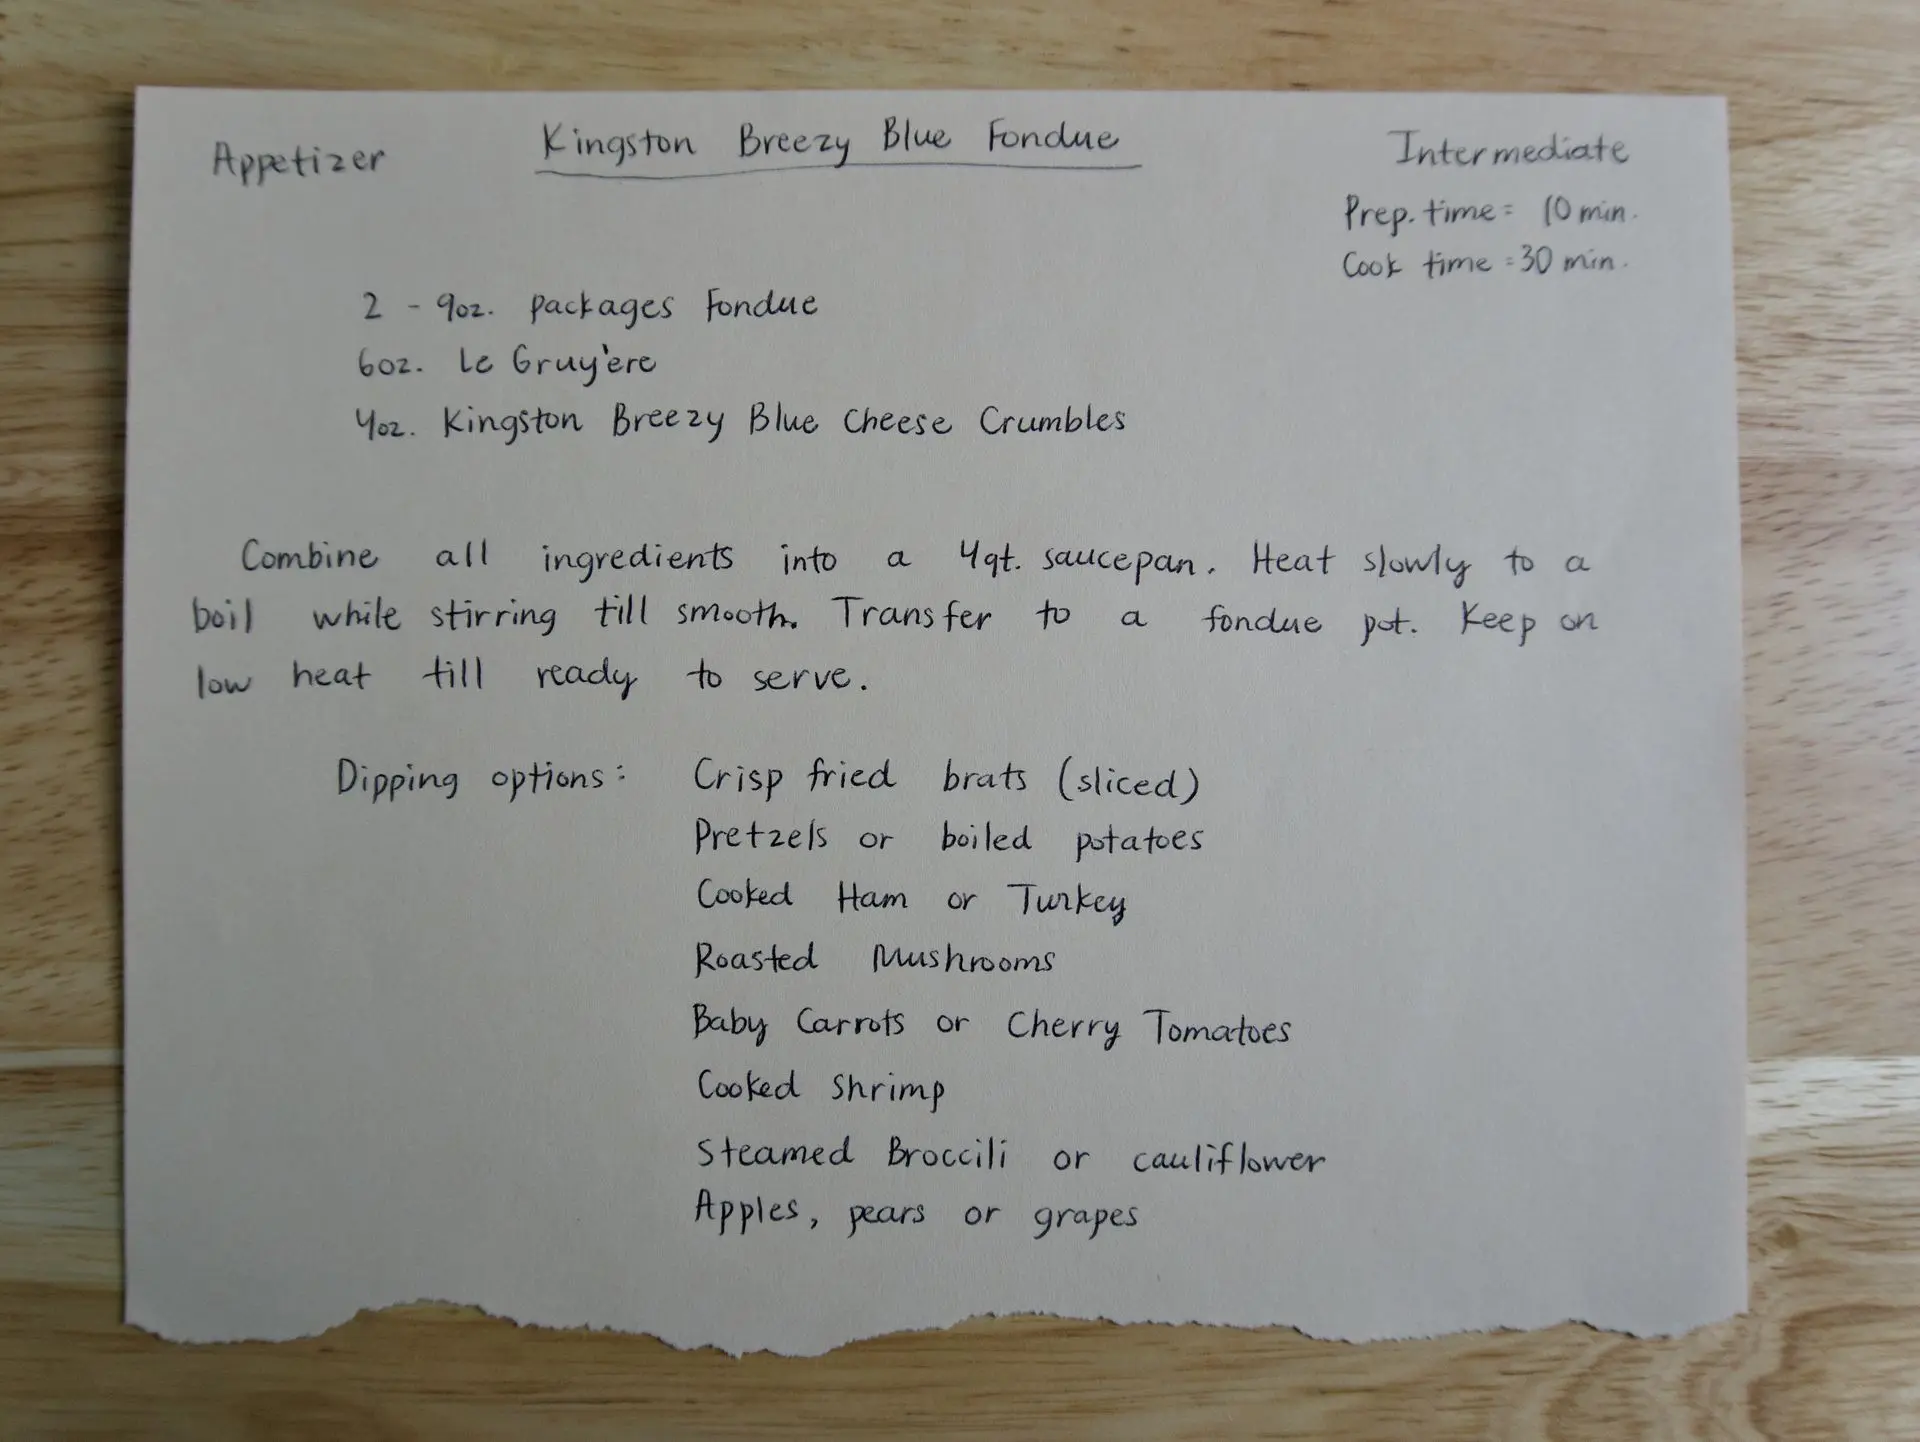 Appetizer
Kingston Breezy Blue Fondue
Intermediate
Prep. time = 10 min.
Cook time = 30 min.
2 - 9oz. packages Fondue
6oz. Le Gruy'ere
4oz. Kingston Breezy Blue Cheese Crumbles
Combine all ingredients into a 4qt. saucepan. Heat slowly to a
boil while stirring till smooth. Transfer to a fondue pot. Keep on
low heat till ready to serve.
Dipping options: Crisp fried brats (sliced)
Pretzels or boiled potatoes
Cooked Ham or Turkey
Roasted Mushrooms
Baby Carrots or Cherry Tomatoes
Cooked Shrimp
Steamed Broccili or cauliflower
Apples, pears or grapes